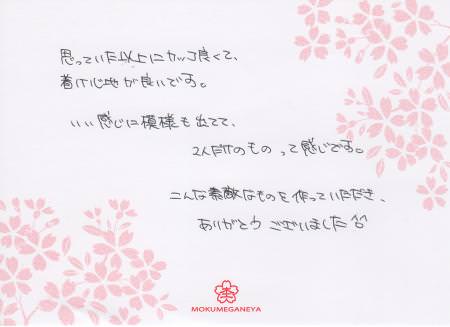 思っていた以上にカッコ良くて、
着け心地が良いです。
いい感じに模様も出てて、
2人だけのもの って感じです。
こんな素敵なものを作っていただき、
ありがとう ございました^^
MOKUMEGANEYA